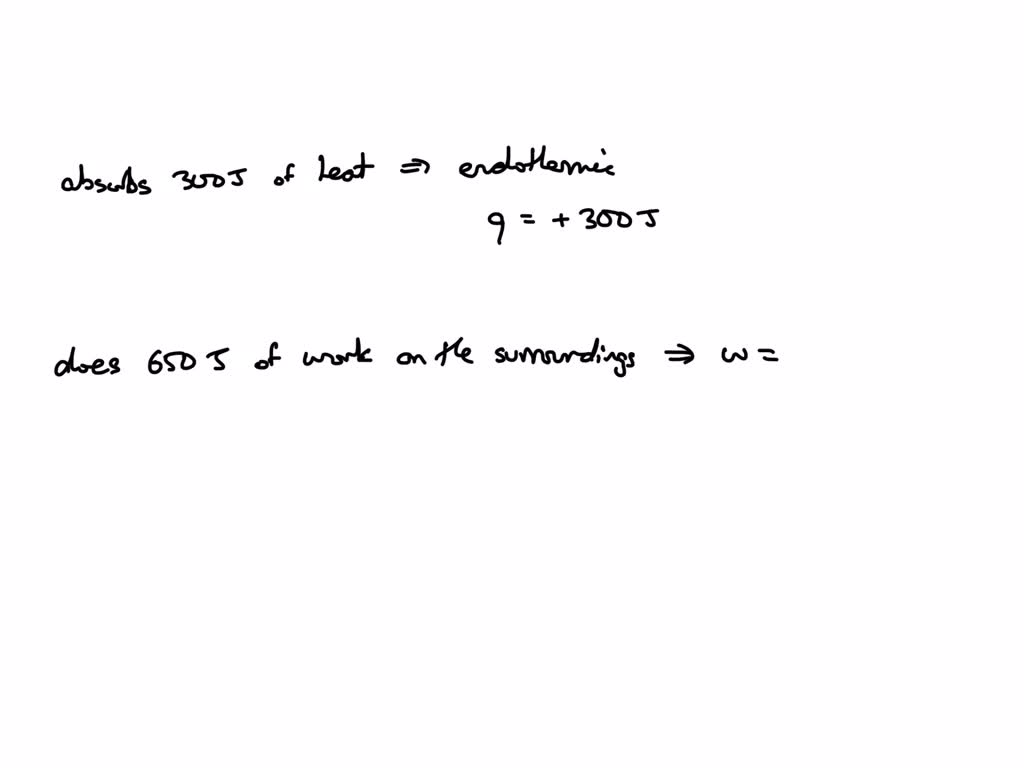 absorbs 300J of heat ⇒ endothermic
q = + 300 J
does 650 J of work on the surroundings ⇒ w =